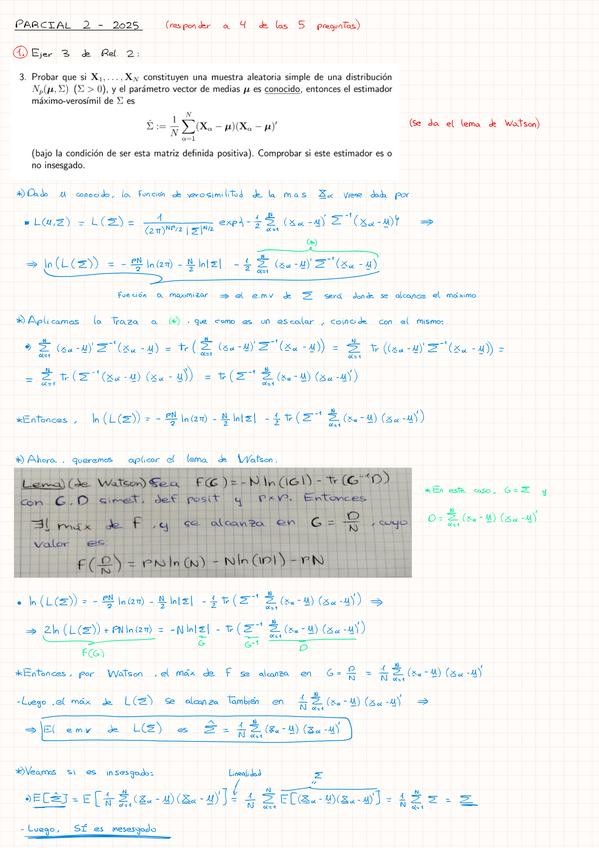 PARCIAL 2 - 2025 (responder a 4 de las 5 preguntas)
1. Ejer 3 de Rel. 2:
3. Probar que si X₁, . . . , X_N constituyen una muestra aleatoria simple de una distribución
N_p(μ, Σ) (Σ > 0), y el parámetro vector de medias μ es conocido, entonces el estimador
máximo-verosímil de Σ es
Σ̂ := 1/N Σ_{α=1}^{N} (X_α − μ)(X_α − μ)′
(se da el lema de Watson)
(bajo la condición de ser esta matriz definida positiva). Comprobar si este estimador es o
no insesgado.
*) Dado μ conocido, la función de verosimilitud de la m.a.s X_α viene dada por
• L(μ,Σ) = L(Σ) = 1/((2π)^{NP/2} |Σ|^{N/2}) exp{-1/2 Σ_{α=1}^{N} (x_α-μ)' Σ⁻¹ (x_α-μ)} ⇒
(*)
⇒ ln(L(Σ)) = - PN/2 ln(2π) - N/2 ln|Σ| - 1/2 Σ_{α=1}^{N} (x_α-μ)' Σ⁻¹ (x_α-μ)
Función a maximizar ⇒ el e.m.v de Σ será donde se alcance el máximo
*) Aplicamos la traza a (*), que como es un escalar, coincide con el mismo:
•) Σ_{α=1}^{N} (x_α-μ)' Σ⁻¹ (x_α-μ) = tr(Σ_{α=1}^{N} (x_α-μ)' Σ⁻¹ (x_α-μ)) = Σ_{α=1}^{N} tr((x_α-μ)' Σ⁻¹ (x_α-μ)) =
= Σ_{α=1}^{N} tr(Σ⁻¹ (x_α-μ) (x_α-μ)') = tr(Σ⁻¹ Σ_{α=1}^{N} (x_α-μ) (x_α-μ)')
*Entonces, ln(L(Σ)) = - PN/2 ln(2π) - N/2 ln|Σ| - 1/2 tr(Σ⁻¹ Σ_{α=1}^{N} (x_α-μ) (x_α-μ)')
*) Ahora, queremos aplicar el lema de Watson.
Lema (de Watson) Sea F(G) = -N ln(|G|) - tr(G⁻¹D)
con G, D simet. def posit y p×p. Entonces
∃! máx de F, y se alcanza en G = D/N, cuyo
valor es
F(D/N) = pN ln(N) - N ln(|D|) - pN
*En este caso, G = Σ y
D = Σ_{α=1}^{N} (x_α-μ) (x_α-μ)'
• ln(L(Σ)) = - PN/2 ln(2π) - N/2 ln|Σ| - 1/2 tr(Σ⁻¹ Σ_{α=1}^{N} (x_α-μ) (x_α-μ)') ⇒
⇒ 2ln(L(Σ)) + PN ln(2π) = -N ln|Σ| - tr(Σ⁻¹ Σ_{α=1}^{N} (x_α-μ) (x_α-μ)')
F(G) G G⁻¹ D
*Entonces, por Watson, el máx de F se alcanza en G = D/N = 1/N Σ_{α=1}^{N} (x_α-μ) (x_α-μ)'
- Luego, el máx de L(Σ) se alcanza también en 1/N Σ_{α=1}^{N} (x_α-μ) (x_α-μ)' ⇒
⇒ El e.m.v de L(Σ) es Σ̂ = 1/N Σ_{α=1}^{N} (X_α-μ) (X_α-μ)'
*) Veamos si es insesgado: Linealidad Σ
•) E[Σ̂] = E[1/N Σ_{α=1}^{N} (X_α-μ)(X_α-μ)'] = 1/N Σ_{α=1}^{N} E[(X_α-μ)(X_α-μ)'] = 1/N Σ_{α=1}^{N} Σ = Σ
- Luego, SÍ es insesgado